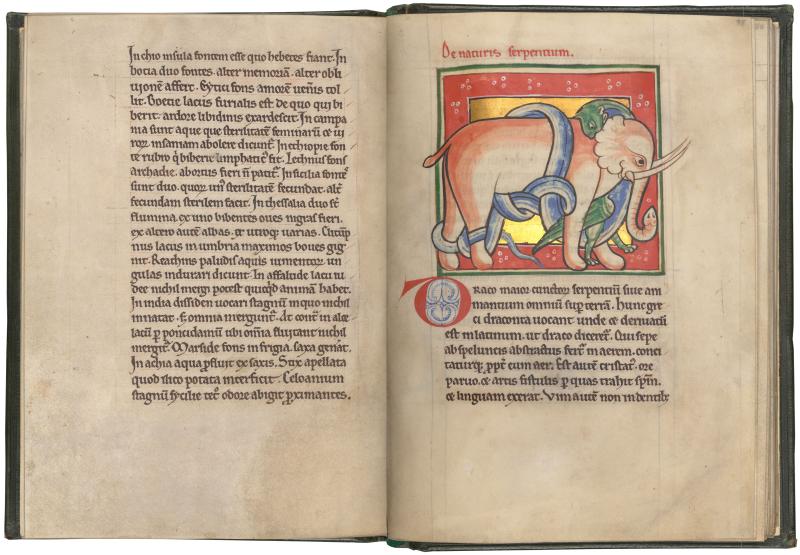 In chio insula fontem esse quo hebetes fiant. In
botia duo fontes. alter memoriā. alter obli
uionē affert. fons amorē uen̄is tol
lit. Boetie lacus furialis est de quo qui bi
berit. ardore libidinis exardescit. In campa
nia sunt aque que sterilitatē feminarū ⁊ ui
rorum insaniam abolere dicunt᷑. In ethiopie fon
te rubro q̇ biberit limphatic᷒ fit. Lechnus fons
archadie. abortus fieri n̄ patit᷑. In sicilia fontes
sunt duo. quor̄ un᷒ sterilitatē fecundat. alt̄
fecundam sterilem facit. In thessalia duo st̄
flumina. ex uno bibentes oues nigras fieri.
ex altero autē albas. ex utroq; uarias.
nus lacus in umbria maximos boues gig
nit. Reatinis paludis aquis iumentor̄ un
gulas indurari dicunt. In affalude lacu iu
dee nichil mergi potest quicq̄d animā habet.
In india dissiden uocari stagnū in quo nichil
innatat. s; omnia mergunt᷑. At cont̄ in aloe
lacū omnia fluitant nichil
mergit᷑. Marside fons in frigia. saxa gen̄at.
In achia aqua p̄fluit ex saxis. Stix apellata
quod ilico potata interficit. Geloannum
stagnū sycilie tet̄ odore abigit p̱ximantes.
De naturis serpentium.
Draco maior cunctor̄ serpentiū siue ani
mantium omniū sup̱ terrā. Hunc gre
ci draconta uocant unde ⁊ deriuatū
est in latinum. ut draco diceret᷑. Qui sepe
ab speluncis abstractus fert᷑ in aerem. conci
taturq; ꝓpt̄ eum aer. Est autē cristat᷒. ore
paruo. ⁊ artis fistulis p̱ quas trahit sp̄m.
⁊ linguam exerat. Vim autē non in dentib;